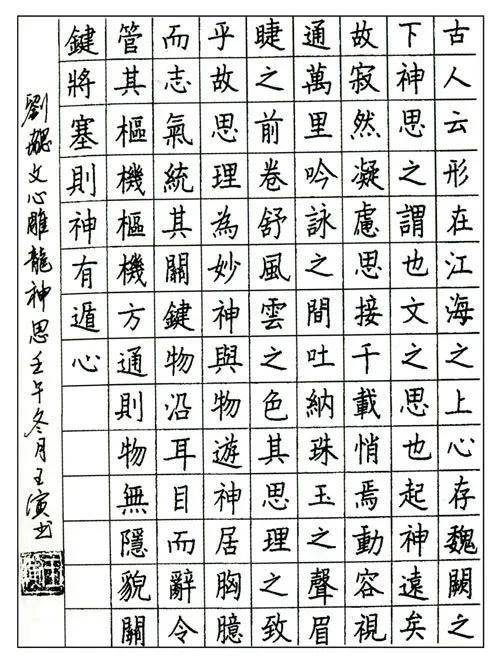 古人云形在江海之上心存魏闕之
下神思之謂也文之思也起神遠矣
故寂然凝慮思接千載悄焉動容視
通萬里吟詠之間吐納珠玉之聲眉
睫之前卷舒風雲之色其思理之致
乎故思理為妙神與物遊神居胸臆
而志氣統其關鍵物沿耳目而辭令
管其樞機樞機方通則物無隱貌關
鍵將塞則神有遁心
劉勰文心雕龍神思壬午冬月王演书